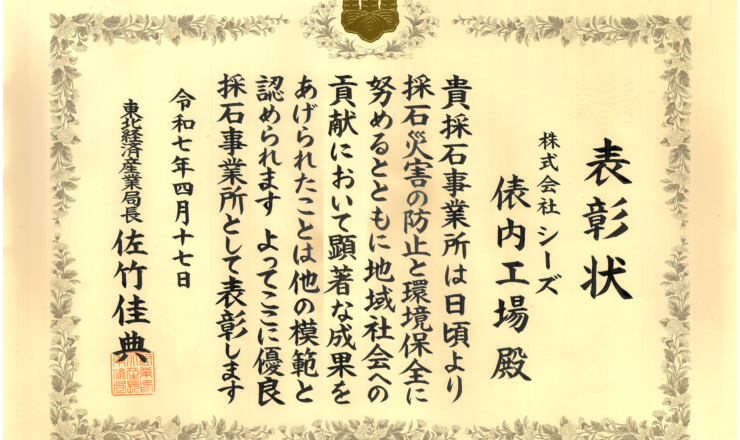 表彰状
株式会社 シーズ
俵内工場 殿
貴採石事業所は日頃より
採石災害の防止と環境保全に
努めるとともに地域社会への
貢献において顕著な成果を
あげられたことは他の模範と
認められます よってここに優良
採石事業所として表彰します
令和七年四月十七日
東北経済産業局長 佐竹佳典